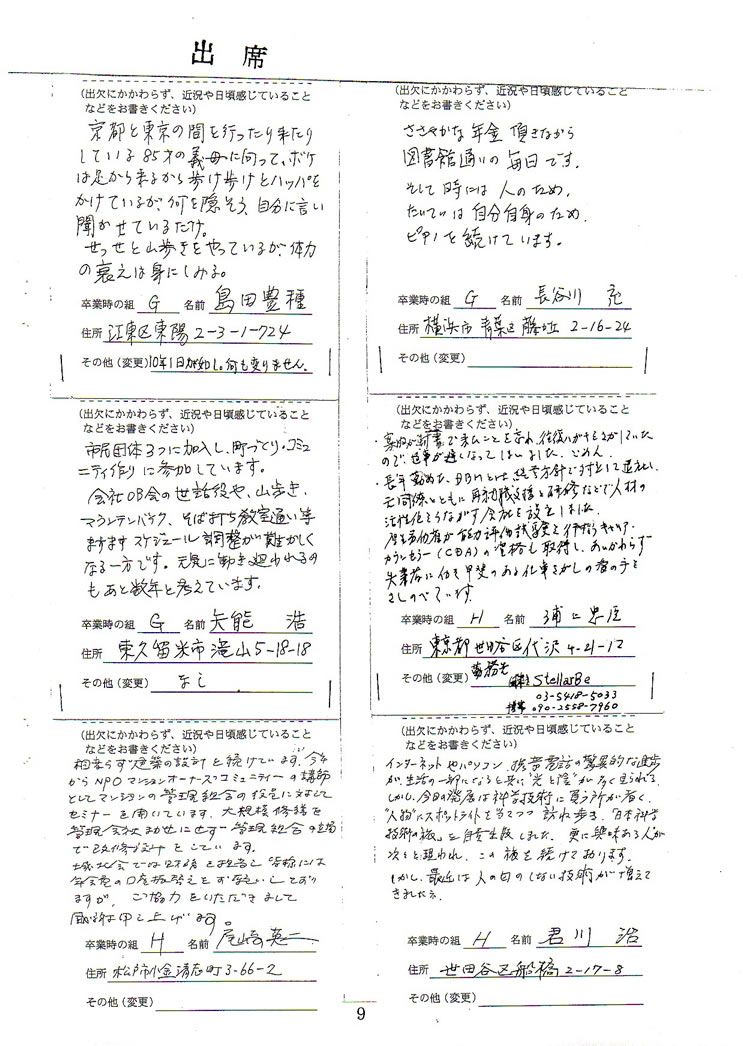 出席
(出欠にかかわらず、近況や日頃感じていること
などをお書きください)
京都と東京の間を行ったり来たり
している85才の義母に向って、ボケ
は足から来るから歩け歩けとハッパを
かけているが、何を隠そう、自分に言い
聞かせているだけ。
せっせと山歩きをやっているが、体力
の衰えは身にしみる。
卒業時の組 G 名前 島田豊種
住所 江東区東陽2-3-1-724
その他(変更) 10年1日が如し。何も変りません。
(出欠にかかわらず、近況や日頃感じていること
などをお書きください)
ささやかな年金頂きながら
図書館通いの毎日です。
そして時には人のため、
たいていは自分自身のため、
ピアノを続けています。
卒業時の組 G 名前 長谷川
住所 横浜市青葉区藤が丘 2-16-24
その他(変更)
(出欠にかかわらず、近況や日頃感じていること
などをお書きください)
市民団体3つに加入し、町づくり・コミュ
ニティ作りに参加しています。
会社OB会の世話役や、山歩き、
マウンテンバイク、そば打ち教室通い等
ますますスケジュール調整が難かしく
なる一方です。元気に動き廻われるの
もあと数年と考えています。
卒業時の組 G 名前 矢能 浩
住所 東久留米市滝山5-18-18
その他(変更) なし
(出欠にかかわらず、近況や日頃感じていること
などをお書きください)
で出すことを忘れ、
ので、仕事が遅くなってしまいました。ごめん。
・長年勤めた
とともに再就職支援と研修などで人材の
活性化をうながす会社を設立しました。
能力評価試験
(CDA)の資格も取得し、あいかわらず
失業者に仕事甲斐のある仕事さがしの
さしのべています。
卒業時の組 H 名前 浦上忠臣
住所 東京都世田谷区代沢4-21-12
その他(変更) 勤務先 StellarBe
03-5418-5033
携帯 090-2558-7960
(出欠にかかわらず、近況や日頃感じていること
などをお書きください)
相変らず建築の設計を続けています。今年
からNPOマンションオーナーズコミュニティーの講師
としてマンションの管理組合の役員に対して
セミナーを開いています。大規模修繕を
管理会社まかせにせず管理組合の立場
で改修設計をしています。
城北会では財務を担当し皆様には
年会費の口座振替えをお願いしており
ますが、ご協力をいただきまして
感謝申し上げます。
卒業時の組 H 名前 尾崎英二
住所 松戸市小金清志町3-66-2
その他(変更)
(出欠にかかわらず、近況や日頃感じていること
などをお書きください)
インターネットやパソコン、携帯電話の驚異的な進歩
が、生活の一部になると共に"光と陰"が多く見られる。
しかし、今日の発展は科学技術に負う所が多く、
"人物"にスポットライトを当てつつ訪れ歩き、「日本科学
技術の旅」を自費出版しました。更に興味ある人が
次々と現われ、この旅を続けております。
しかし、最近は人の目のしない技術が増えて
きましたネ。
卒業時の組 H 名前 君川 浩
住所 世田谷区船橋2-17-8
その他(変更)
9